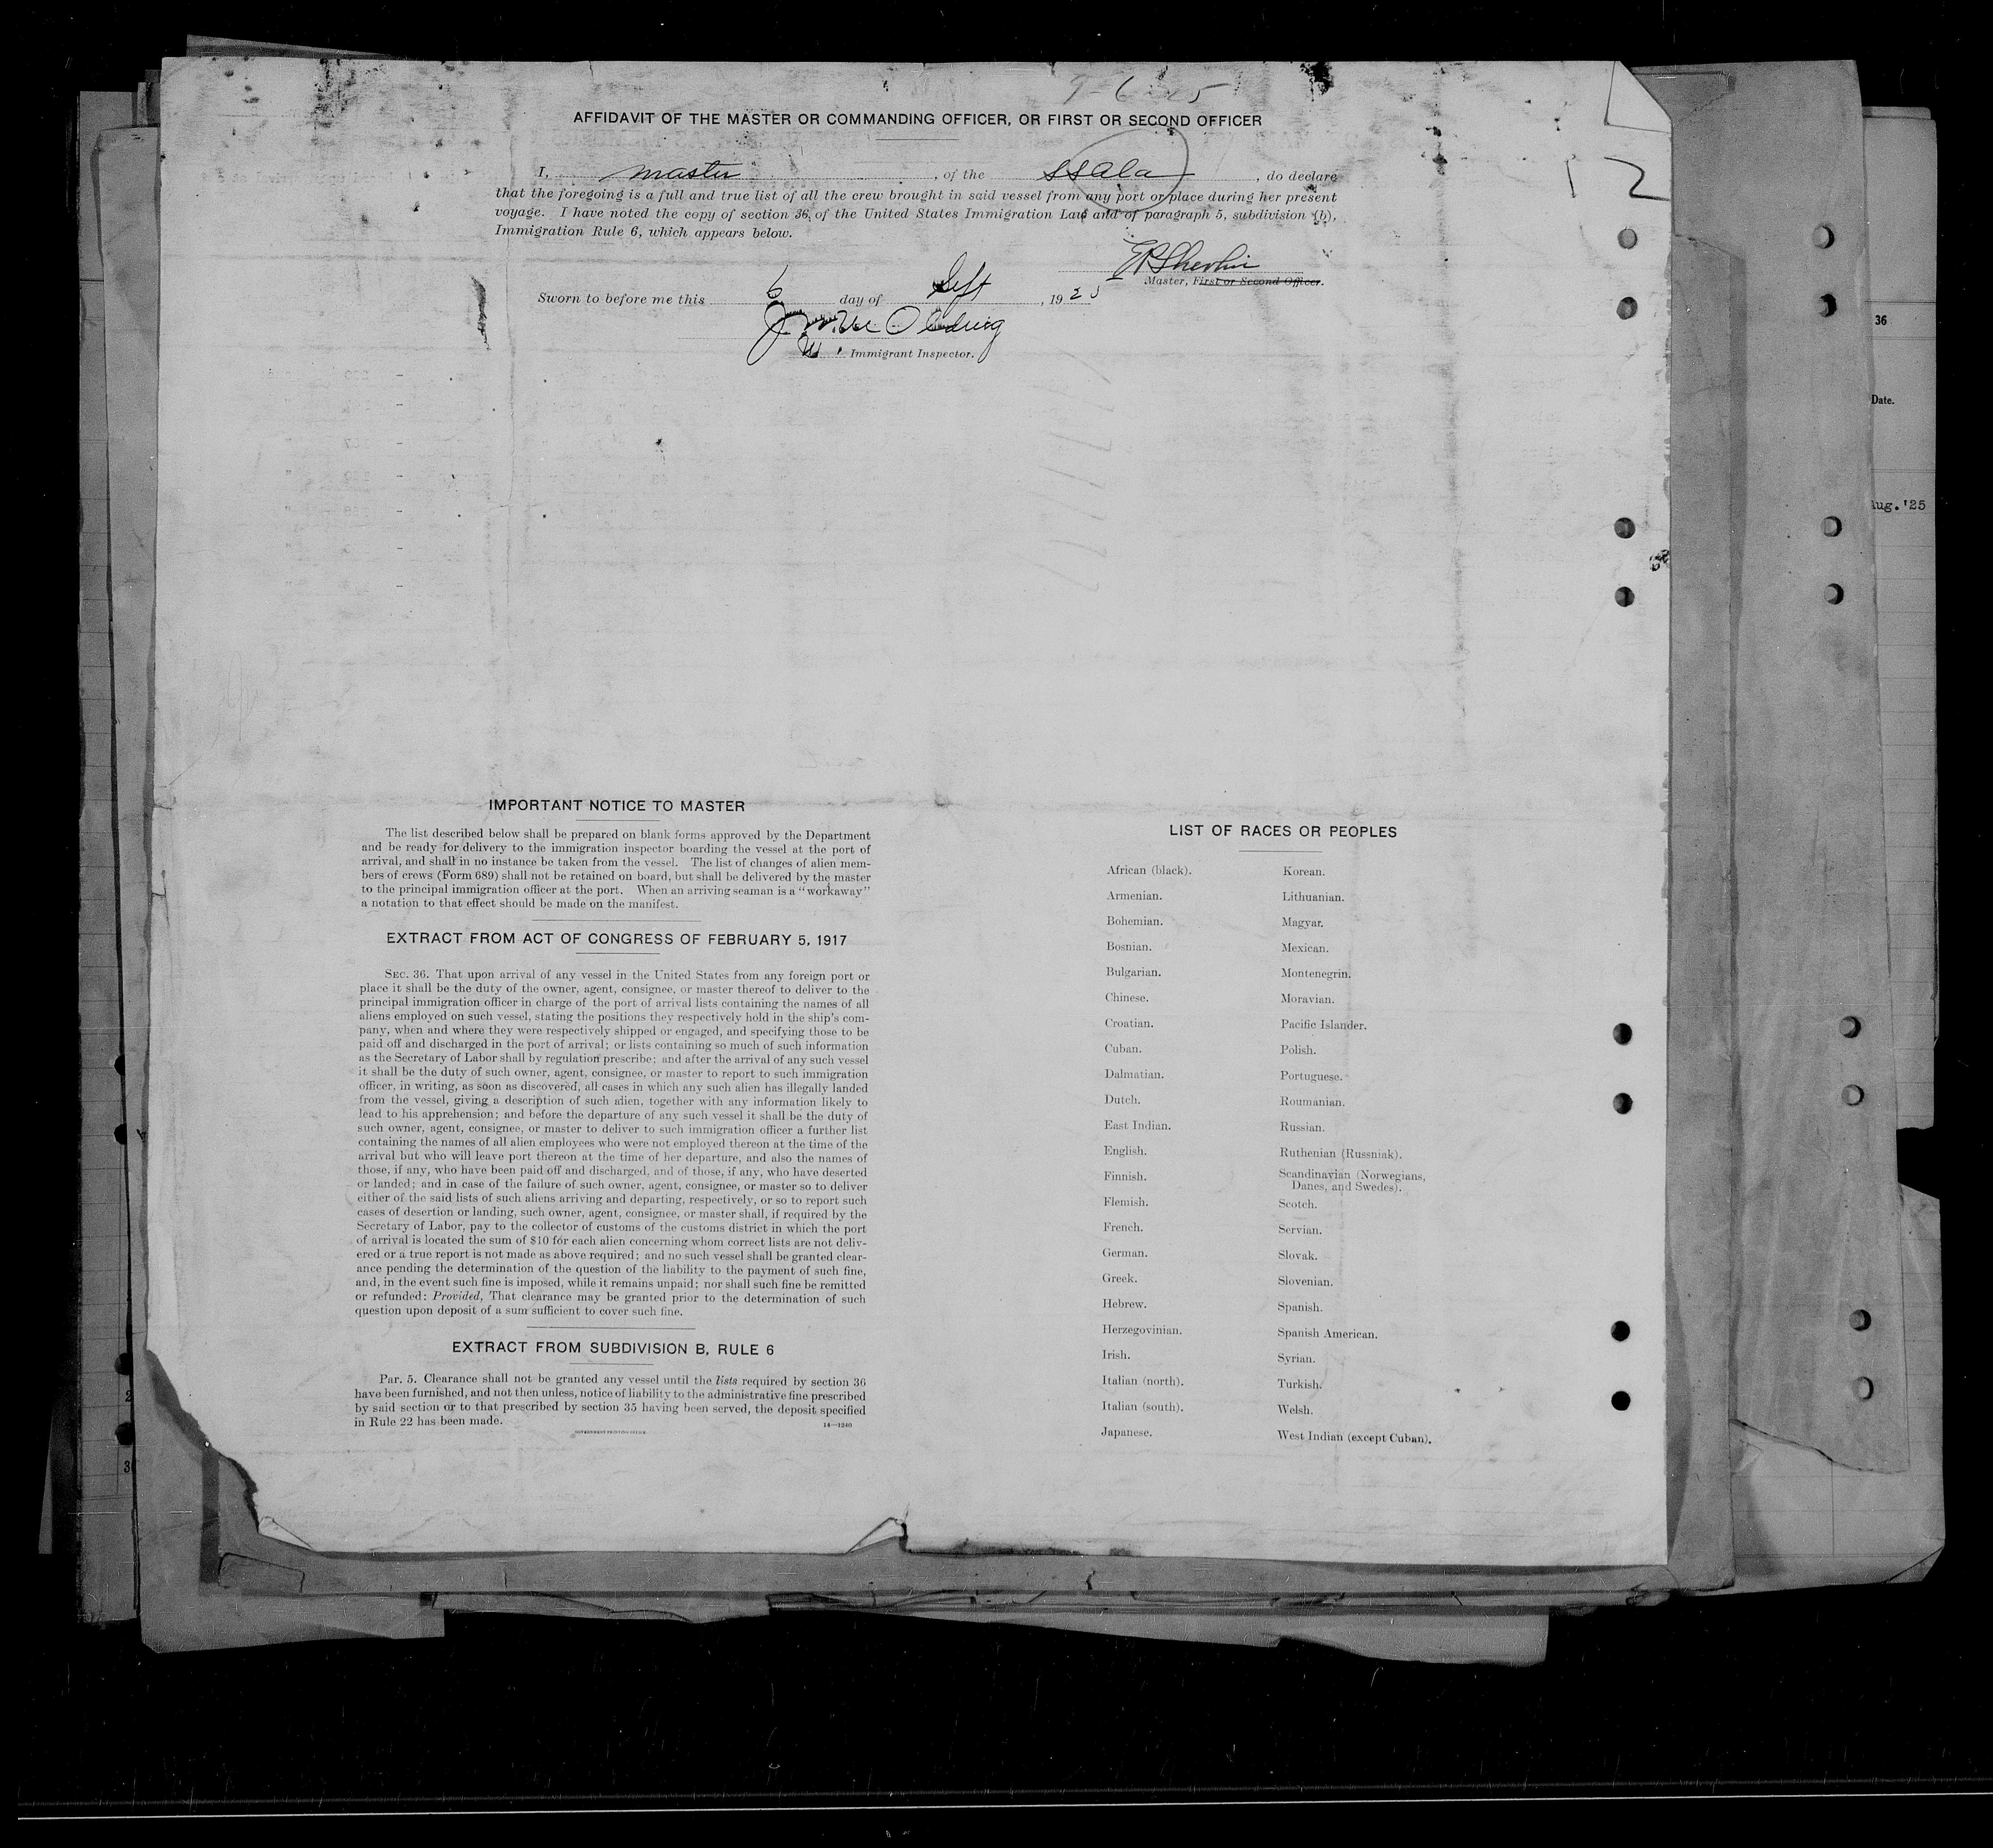 9-6-25
AFFIDAVIT OF THE MASTER OR COMMANDING OFFICER, OR FIRST OR SECOND OFFICER
I, master, of the SS Ala, do declare
that the foregoing is a full and true list of all the crew brought in said vessel from any port or place during her present
voyage. I have noted the copy of section 36, of the United States Immigration Law and of paragraph 5, subdivision (b),
Immigration Rule 6, which appears below.
12
Master, First or Second Officer.
Sworn to before me this 6 day of Sept, 1925
Immigrant Inspector.
36
Date.
Aug.'25
IMPORTANT NOTICE TO MASTER
The list described below shall be prepared on blank forms approved by the Department
and be ready for delivery to the immigration inspector boarding the vessel at the port of
arrival, and shall in no instance be taken from the vessel. The list of changes of alien mem-
bers of crews (Form 689) shall not be retained on board, but shall be delivered by the master
to the principal immigration officer at the port. When an arriving seaman is a "workaway"
a notation to that effect should be made on the manifest.
EXTRACT FROM ACT OF CONGRESS OF FEBRUARY 5, 1917
SEC. 36. That upon arrival of any vessel in the United States from any foreign port or
place it shall be the duty of the owner, agent, consignee, or master thereof to deliver to the
principal immigration officer in charge of the port of arrival lists containing the names of all
aliens employed on such vessel, stating the positions they respectively hold in the ship's com-
pany, when and where they were respectively shipped or engaged, and specifying those to be
paid off and discharged in the port of arrival; or lists containing so much of such information
as the Secretary of Labor shall by regulation prescribe; and after the arrival of any such vessel
it shall be the duty of such owner, agent, consignee, or master to report to such immigration
officer, in writing, as soon as discovered, all cases in which any such alien has illegally landed
from the vessel, giving a description of such alien, together with any information likely to
lead to his apprehension; and before the departure of any such vessel it shall be the duty of
such owner, agent, consignee, or master to deliver to such immigration officer a further list
containing the names of all alien employees who were not employed thereon at the time of the
arrival but who will leave port thereon at the time of her departure, and also the names of
those, if any, who have been paid off and discharged, and of those, if any, who have deserted
or landed; and in case of the failure of such owner, agent, consignee, or master so to deliver
either of the said lists of such aliens arriving and departing, respectively, or so to report such
cases of desertion or landing, such owner, agent, consignee, or master shall, if required by the
Secretary of Labor, pay to the collector of customs of the customs district in which the port
of arrival is located the sum of $10 for each alien concerning whom correct lists are not deliv-
ered or a true report is not made as above required; and no such vessel shall be granted clear-
ance pending the determination of the question of the liability to the payment of such fine,
and, in the event such fine is imposed, while it remains unpaid; nor shall such fine be remitted
or refunded: Provided, That clearance may be granted prior to the determination of such
question upon deposit of a sum sufficient to cover such fine.
EXTRACT FROM SUBDIVISION B, RULE 6
Par. 5. Clearance shall not be granted any vessel until the lists required by section 36
have been furnished, and not then unless, notice of liability to the administrative fine prescribed
by said section or to that prescribed by section 35 having been served, the deposit specified
in Rule 22 has been made.
14—1240
GOVERNMENT PRINTING OFFICE
LIST OF RACES OR PEOPLES
African (black).
Armenian.
Bohemian.
Bosnian.
Bulgarian.
Chinese.
Croatian.
Cuban.
Dalmatian.
Dutch.
East Indian.
English.
Finnish.
Flemish.
French.
German.
Greek.
Hebrew.
Herzegovinian.
Irish.
Italian (north).
Italian (south).
Japanese.
Korean.
Lithuanian.
Magyar.
Mexican.
Montenegrin.
Moravian.
Pacific Islander.
Polish.
Portuguese.
Roumanian.
Russian.
Ruthenian (Russniak).
Scandinavian (Norwegians,
Danes, and Swedes).
Scotch.
Servian.
Slovak.
Slovenian.
Spanish.
Spanish American.
Syrian.
Turkish.
Welsh.
West Indian (except Cuban).